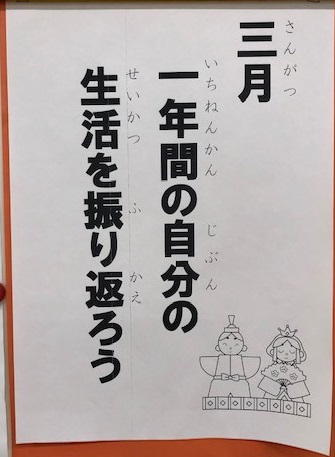 三月
さんがつ
一年間の自分の
いちねんかん じぶん
生活を振り返ろう
せいかつ ふ かえ